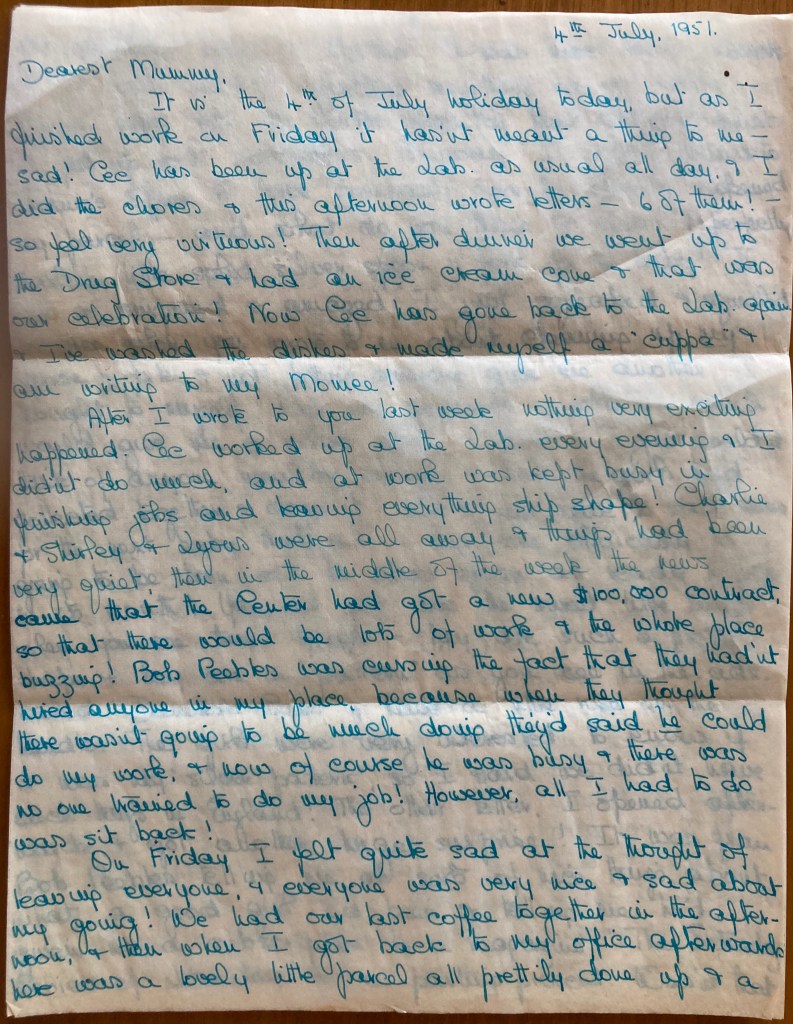 4th July, 1951.
Dearest Mummy,
It is the 4th of July holiday today, but as I
finished work on Friday it hasn't meant a thing to me –
sad! Cec has been up at the Lab. as usual all day, & I
did the chores & this afternoon wrote letters – 6 of them! –
so feel very virtuous! Then after dinner we went up to
the Drug Store & had an ice cream cone & that was
our celebration! Now Cec has gone back to the Lab. again
& I've washed the dishes & made myself a "cuppa" &
am writing to my Momee!
After I wrote to you last week nothing very exciting
happened. Cec worked up at the Lab. every evening & I
didn't do much, and at work was kept busy in
finishing jobs and leaving everything ship shape! Charlie
& Shirley & Lyons were all away & things had been
very quiet, then in the middle of the week the news
came that the Center had got a new $100,000 contract,
so that there would be lots of work & the whole place
buzzing! Bob Peebles was cursing the fact that they hadn't
hired anyone in my place, because when they thought
there wasn't going to be much doing they'd said he could
do my work, & now of course he was busy & there was
no one trained to do my job! However, all I had to do
was sit back!
On Friday I felt quite sad at the thought of
leaving everyone, & everyone was very nice & sad about
my going! We had our last coffee together in the after-
noon, & then when I got back to my office afterwards
here was a lovely little parcel all prettily done up & a